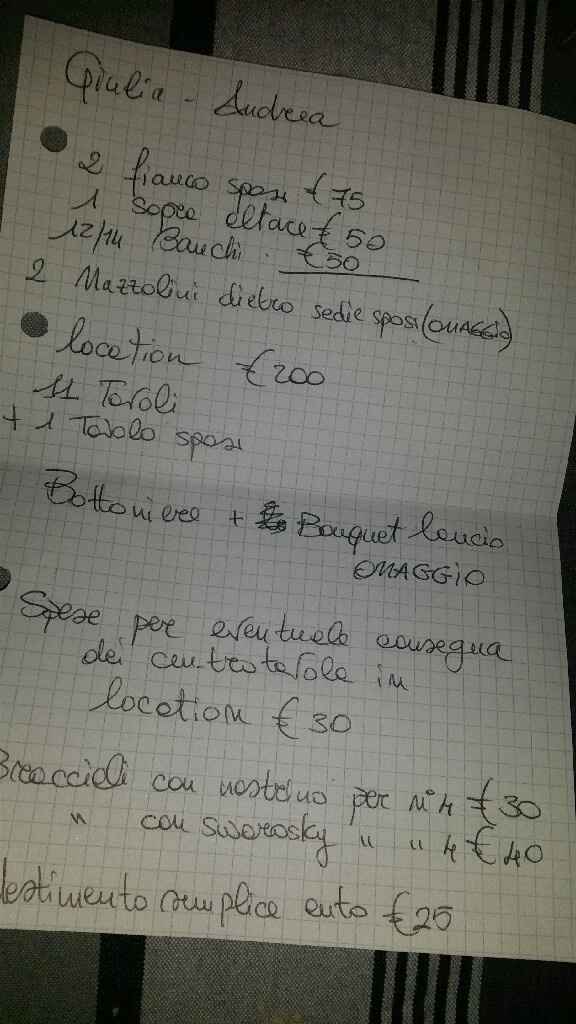 Giulia - Andrea
2 fianco sposi €75
1 sopra altare €50
12/14 Banchi. €50
2 Mazzolini dietro sedie sposi (OMAGGIO)
location €200
11 Tavoli
+ 1 Tavolo sposi
Bottoniere + Bouquet lancio
OMAGGIO
Spese per eventuale consegna
dei centrotavola in
location €30
Braccioli con nastrino per n°4 €30
" con sworosky " " 4 €40
llestimento semplice auto €25